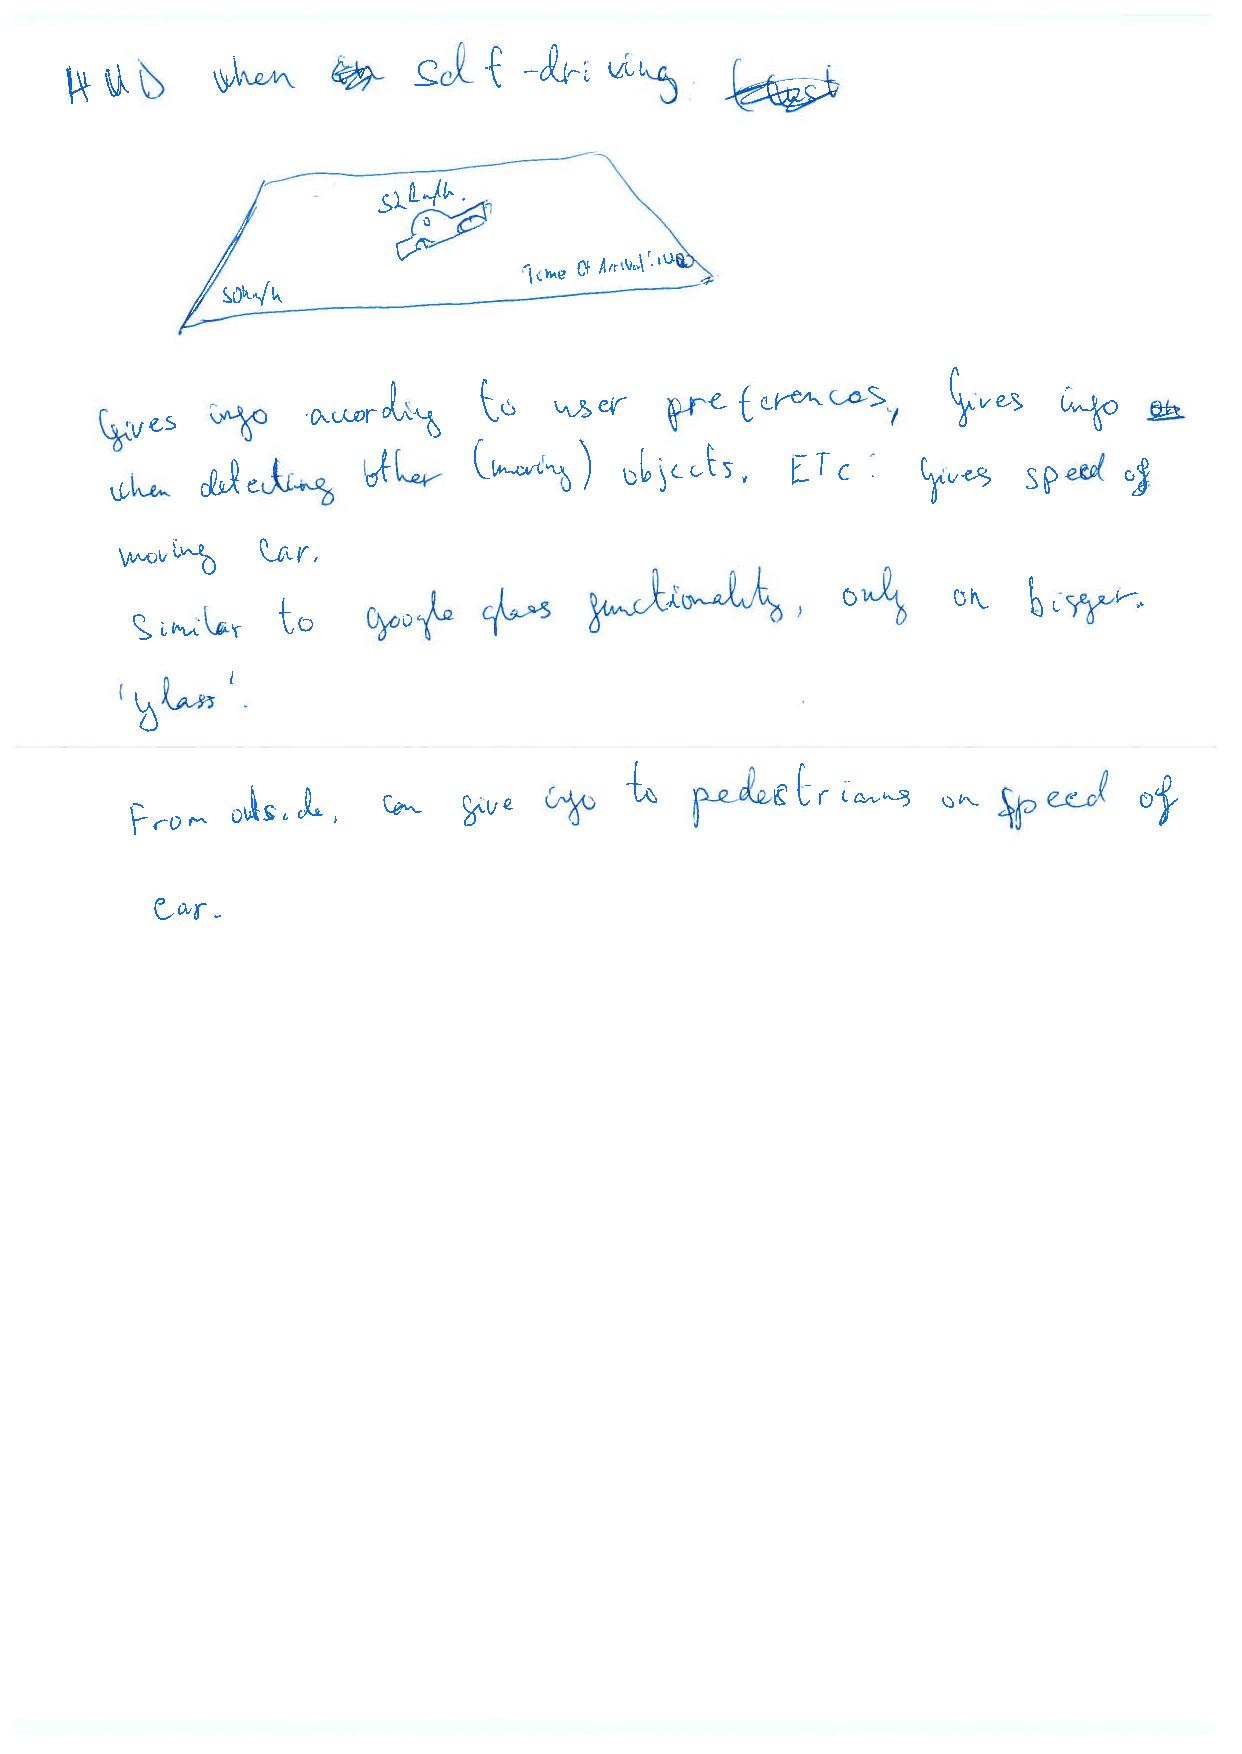 HUD when self-driving.
52km/h.
Time Of Arrival:
50km/h
Gives info according to user preferences, Gives info
when detecting other (moving) objects. ETC: Gives speed of
moving car.
Similar to google glass functionality, only on bigger.
'glass'.
From outside, can give info to pedestrians on speed of
car.